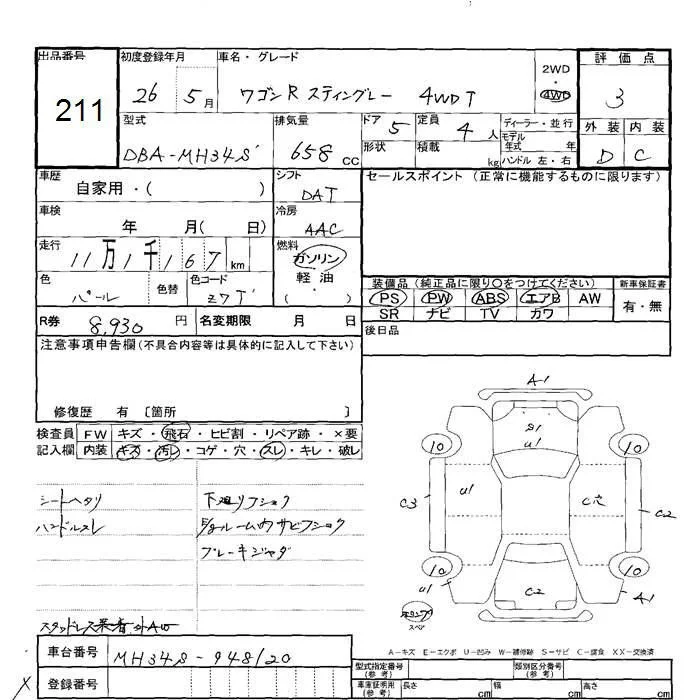 出品番号 211
初度登録年月 26 5月
車名・グレード ワゴンR スティングレー 4WD T
2WD・4WD
評価点 3
外装 D 内装 C
型式 DBA-MH34S
排気量 658 cc
ドア 5 定員 4人
形状 積載 kg
ディーラー・並行
モデル年式 年
ハンドル 左・右
車歴 自家用・( )
シフト DAT
セールスポイント (正常に機能するものに限ります)
車検 年 月( 日)
冷房 AAC
走行 11万1千167 km
燃料 ガソリン・軽油・
色 パール 色替 色コード Z7T
装備品 (純正品に限り○をつけてください) 新車保証書
PS PW ABS エアB AW 有・無
SR ナビ TV カワ
R券 8,930 円 名変期限 月 日
後日品
注意事項申告欄(不具合内容等は具体的に記入して下さい)
修復歴 有 〔箇所 〕
検査員 FW キズ・飛石・ヒビ割・リペア跡・×要
記入欄 内装 キズ・汚レ・コゲ・穴・スレ・キレ・破レ
シートヘタリ 下廻リフショク
ハンドルスレ
ブレーキジャダ
A1
U1
10 10
C3 U1 C穴 C2
10 10
U1 C2 A1
スペア
A-キズ E-エクボ U-凹み W-補修跡 S-サビ C-腐食 XX-交換済
車台番号 MH34S-948120
登録番号
型式指定番号(参考) 類別区分番号(参考)
車庫証明用(参考) 長さ cm 幅 cm 高さ cm